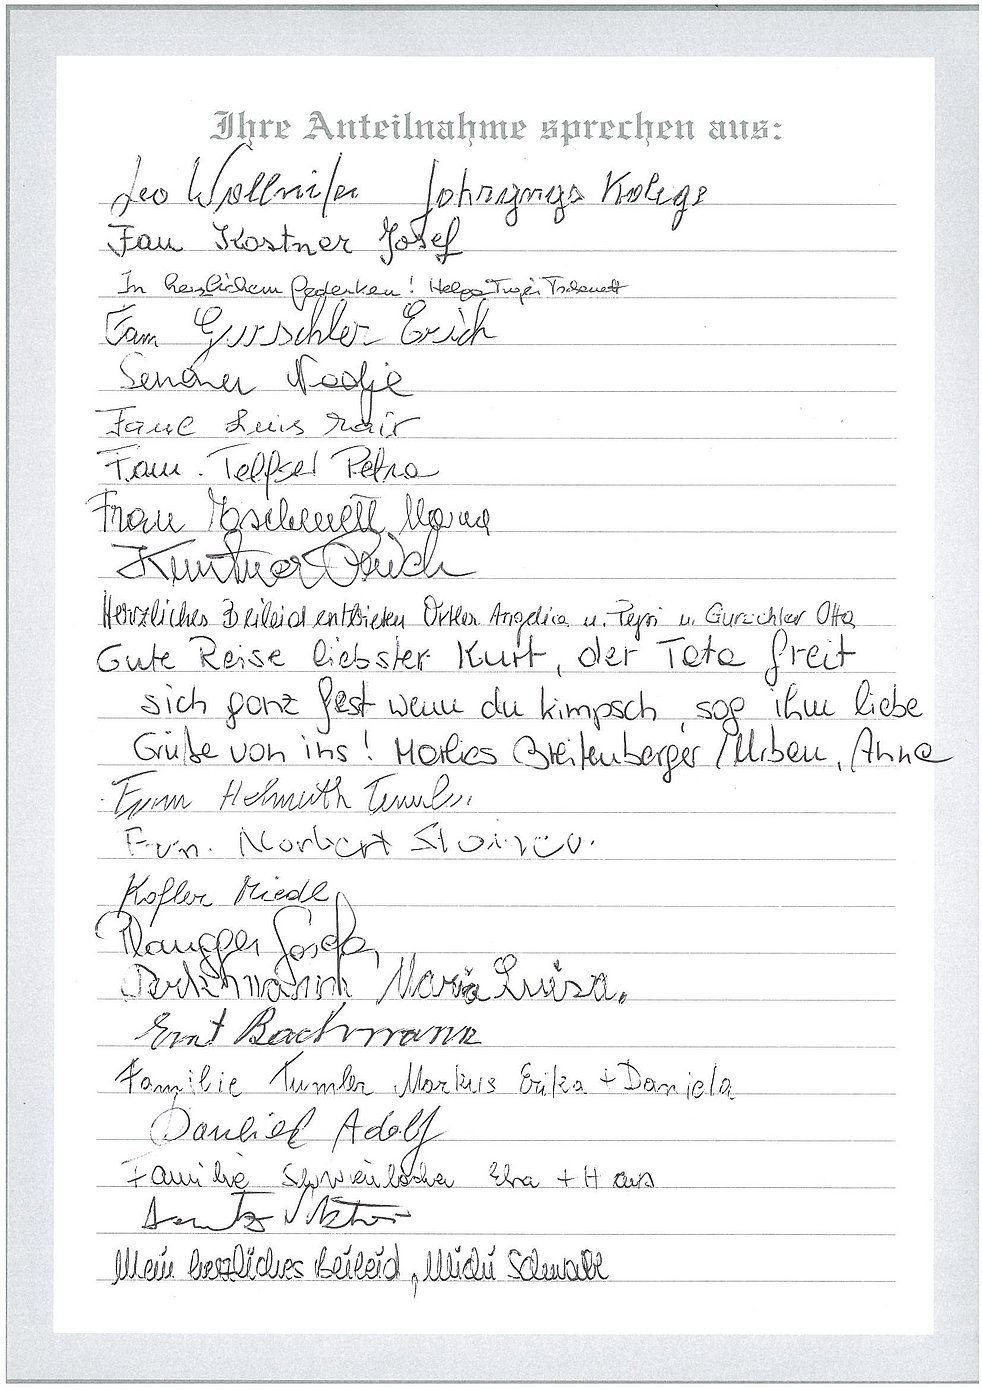 Ihre Anteilnahme sprechen aus:
Leo Kolege
Fam Kostner Josef
In herzlichem Gedenken! Helga
Fam Gurschler Erich
Senoner Nadje
Fam Luis Mair
Fam. Telfser Petra
Frau Tschenett Maria
Kuntner Erich
Herzliches Beileid entbieten Ortler Angelica u. Pepi u. Gurschler Otto
Gute Reise liebster Kurt, der Tata freit
sich ganz fest wenn du kimpsch, sog ihm liebe
Grüße von ins! Marlies Breitenberger / Urban, Anna
Fam Helmuth Tumler
Fam. Norbert
Kofler Friedl
Plangger Josef
Maria Luisa.
Ernst Bachmann
Familie Tumler Markus Erika + Daniela
Adolf
Familie + Hans
Viktor
Mein herzliches Beileid, Michi Schwalt